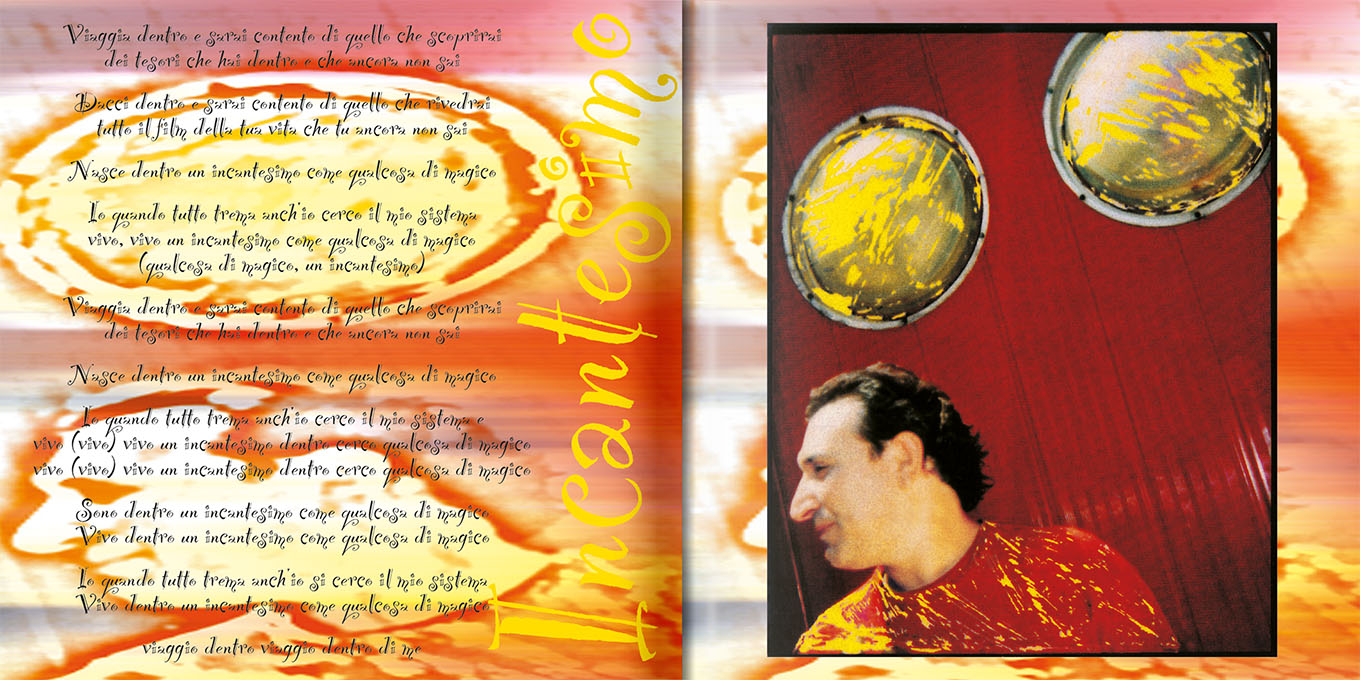 Viaggia dentro e sarai contento di quello che scoprirai
dei tesori che hai dentro e che ancora non sai
Dacci dentro e sarai contento di quello che rivedrai
tutto il film della tua vita che tu ancora non sai
Nasce dentro un incantesimo come qualcosa di magico
Io quando tutto trema anch'io cerco il mio sistema
vivo, vivo un incantesimo come qualcosa di magico
(qualcosa di magico, un incantesimo)
Viaggia dentro e sarai contento di quello che scoprirai
dei tesori che hai dentro e che ancora non sai
Nasce dentro un incantesimo come qualcosa di magico
Io quando tutto trema anch'io cerco il mio sistema e
vivo (vivo) vivo un incantesimo dentro cerco qualcosa di magico
vivo (vivo) vivo un incantesimo dentro cerco qualcosa di magico
Sono dentro un incantesimo come qualcosa di magico
Vivo dentro un incantesimo come qualcosa di magico
Io quando tutto trema anch'io si cerco il mio sistema
Vivo dentro un incantesimo come qualcosa di magico
viaggio dentro viaggio dentro di me
Incantesimo